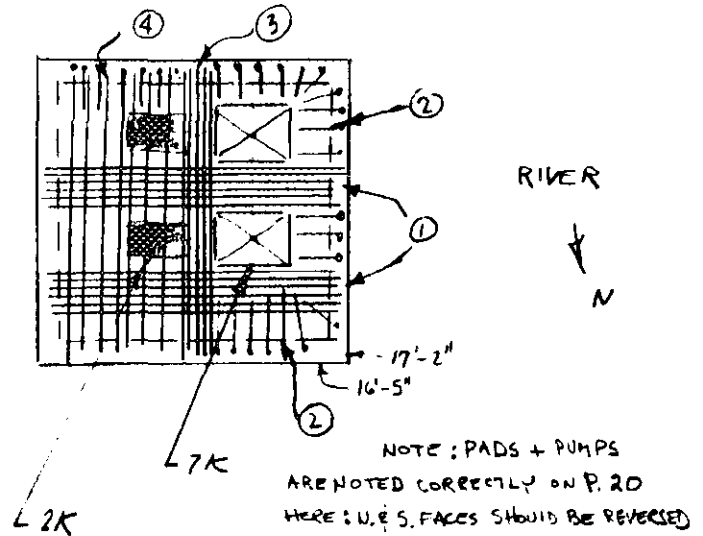 ④ ③
②
RIVER
①
N
- 17'-2"
16'-5"
②
7K
2K
NOTE : PADS + PUMPS
ARE NOTED CORRECTLY ON P. 20
HERE : N. & S. FACES SHOULD BE REVERSED